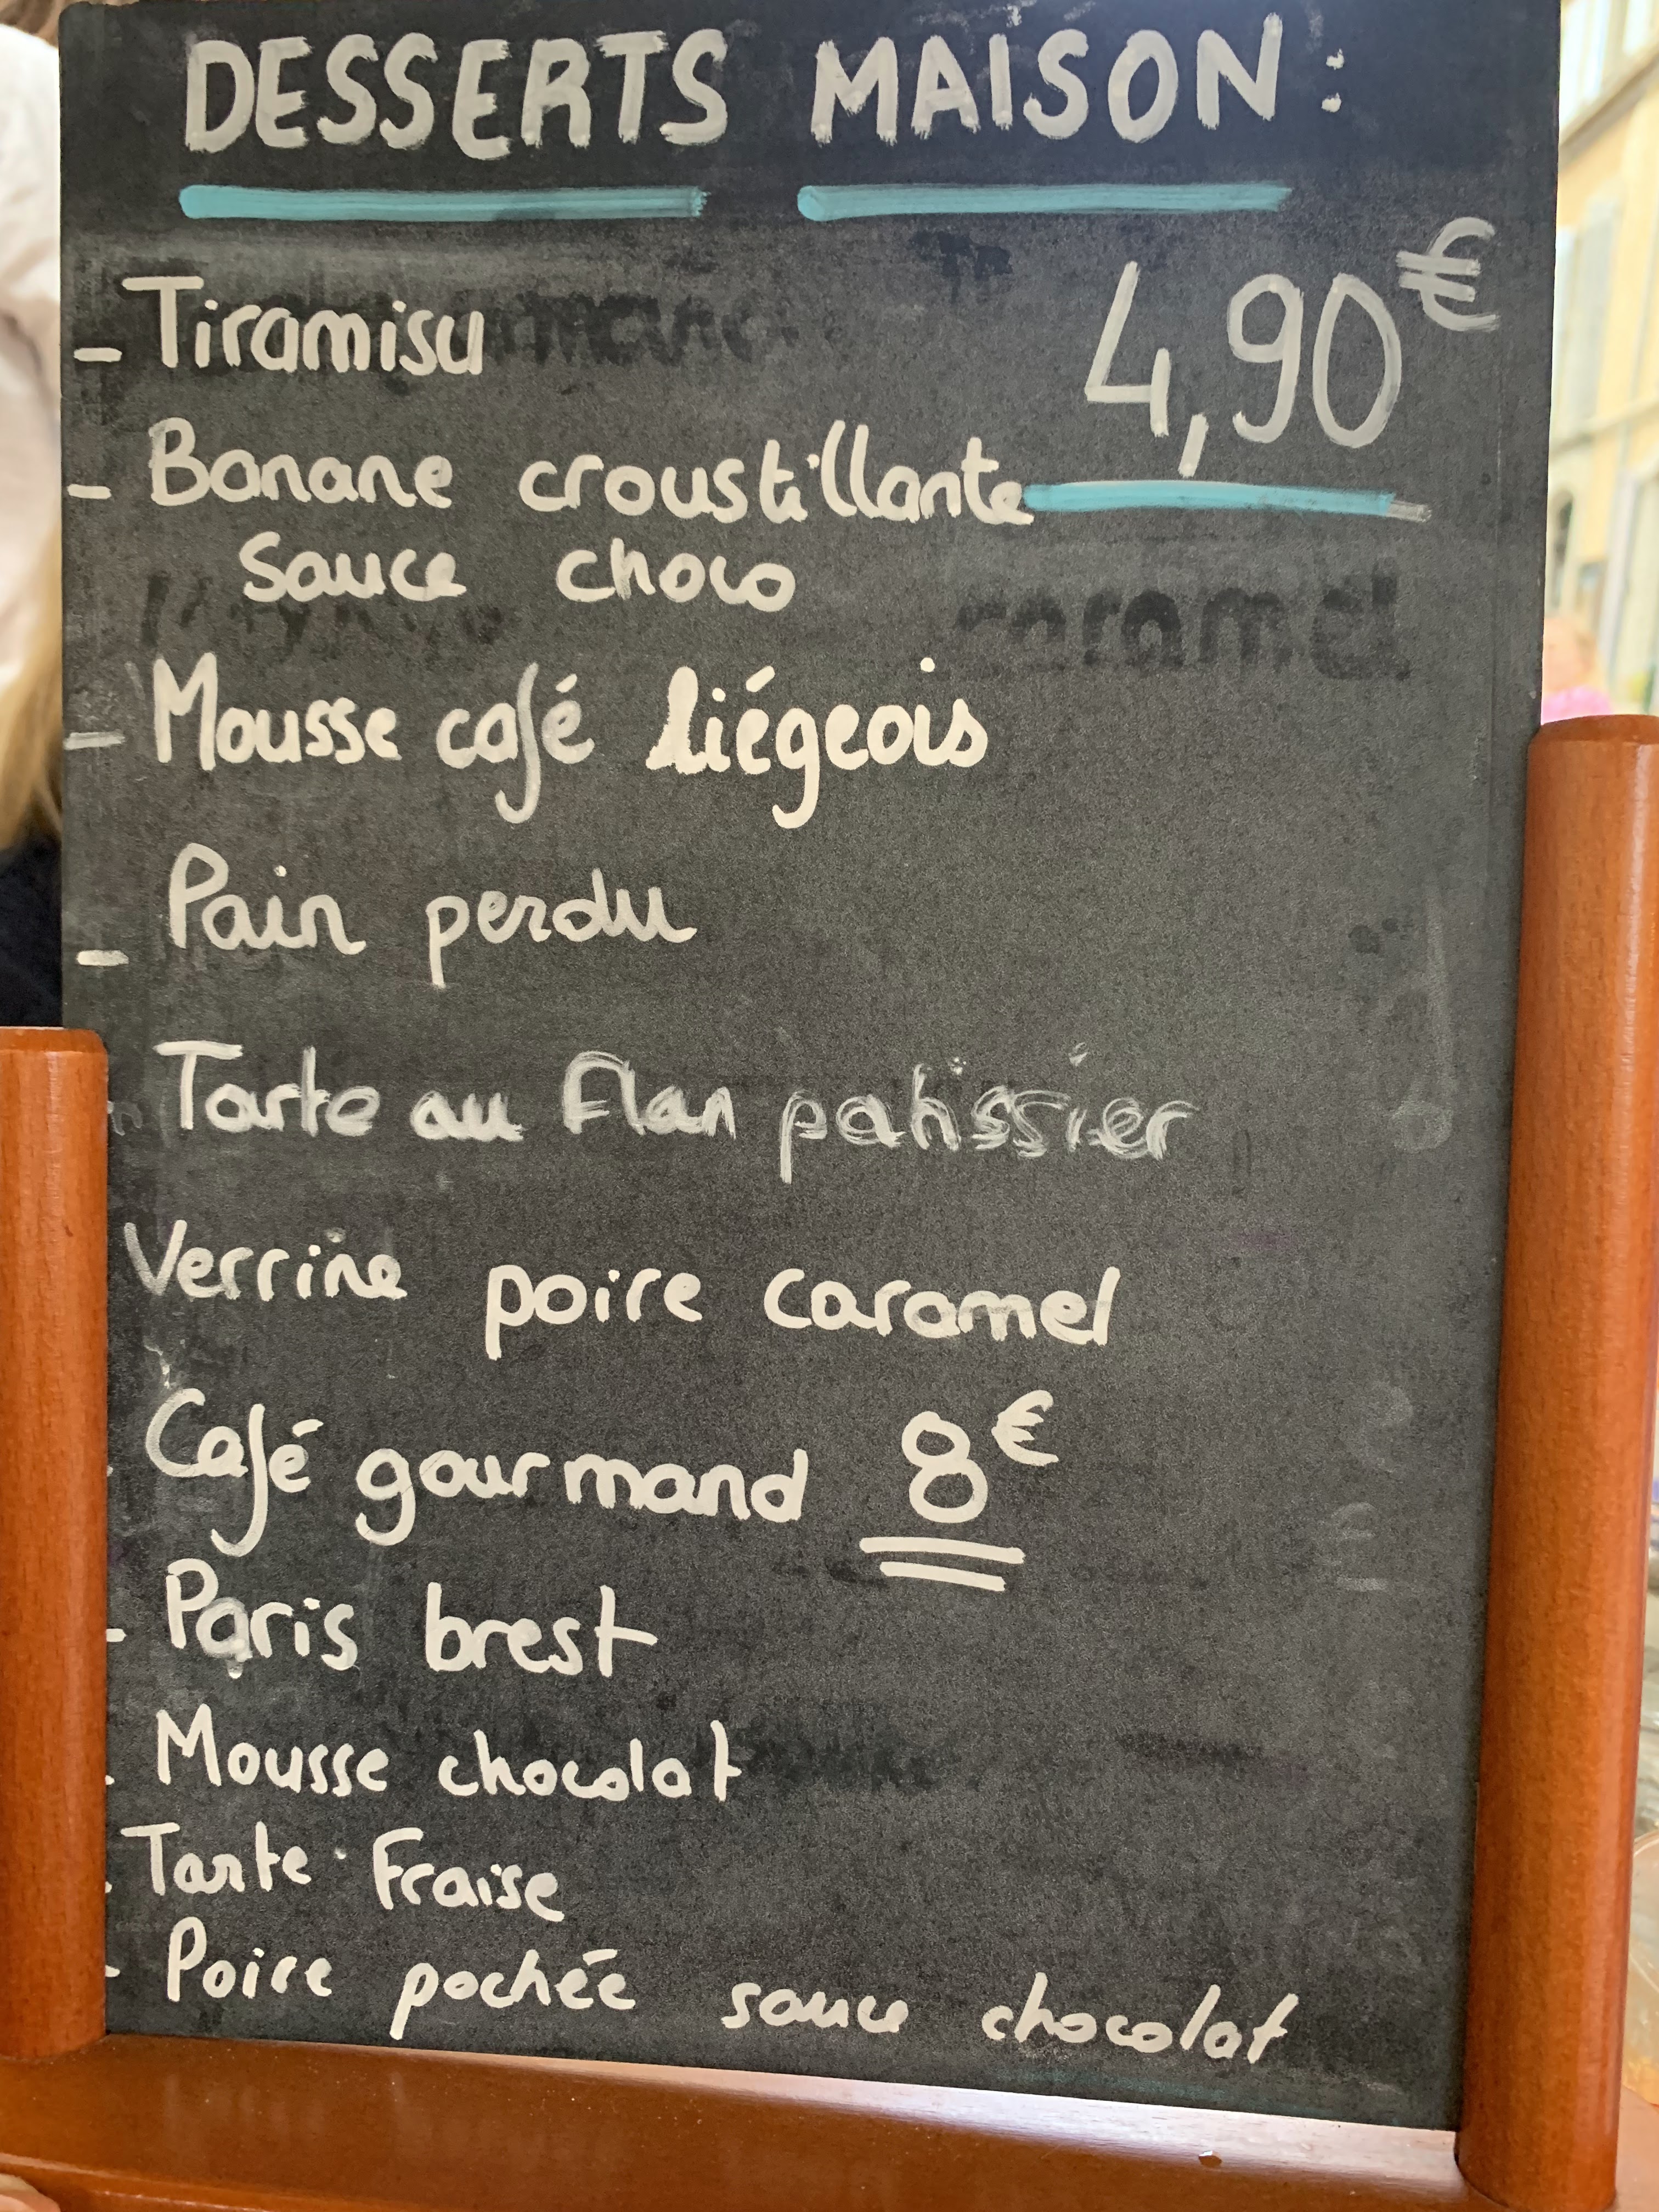 DESSERTS MAISON :
4,90€
- Tiramisu
- Banane croustillante
sauce choco
caramel
- Mousse café liégeois
- Pain perdu
Tarte au Flan patissier
Verrine poire caramel
Café gourmand 8€
- Paris brest
- Mousse chocolat
- Tarte Fraise
- Poire pochée sauce chocolat